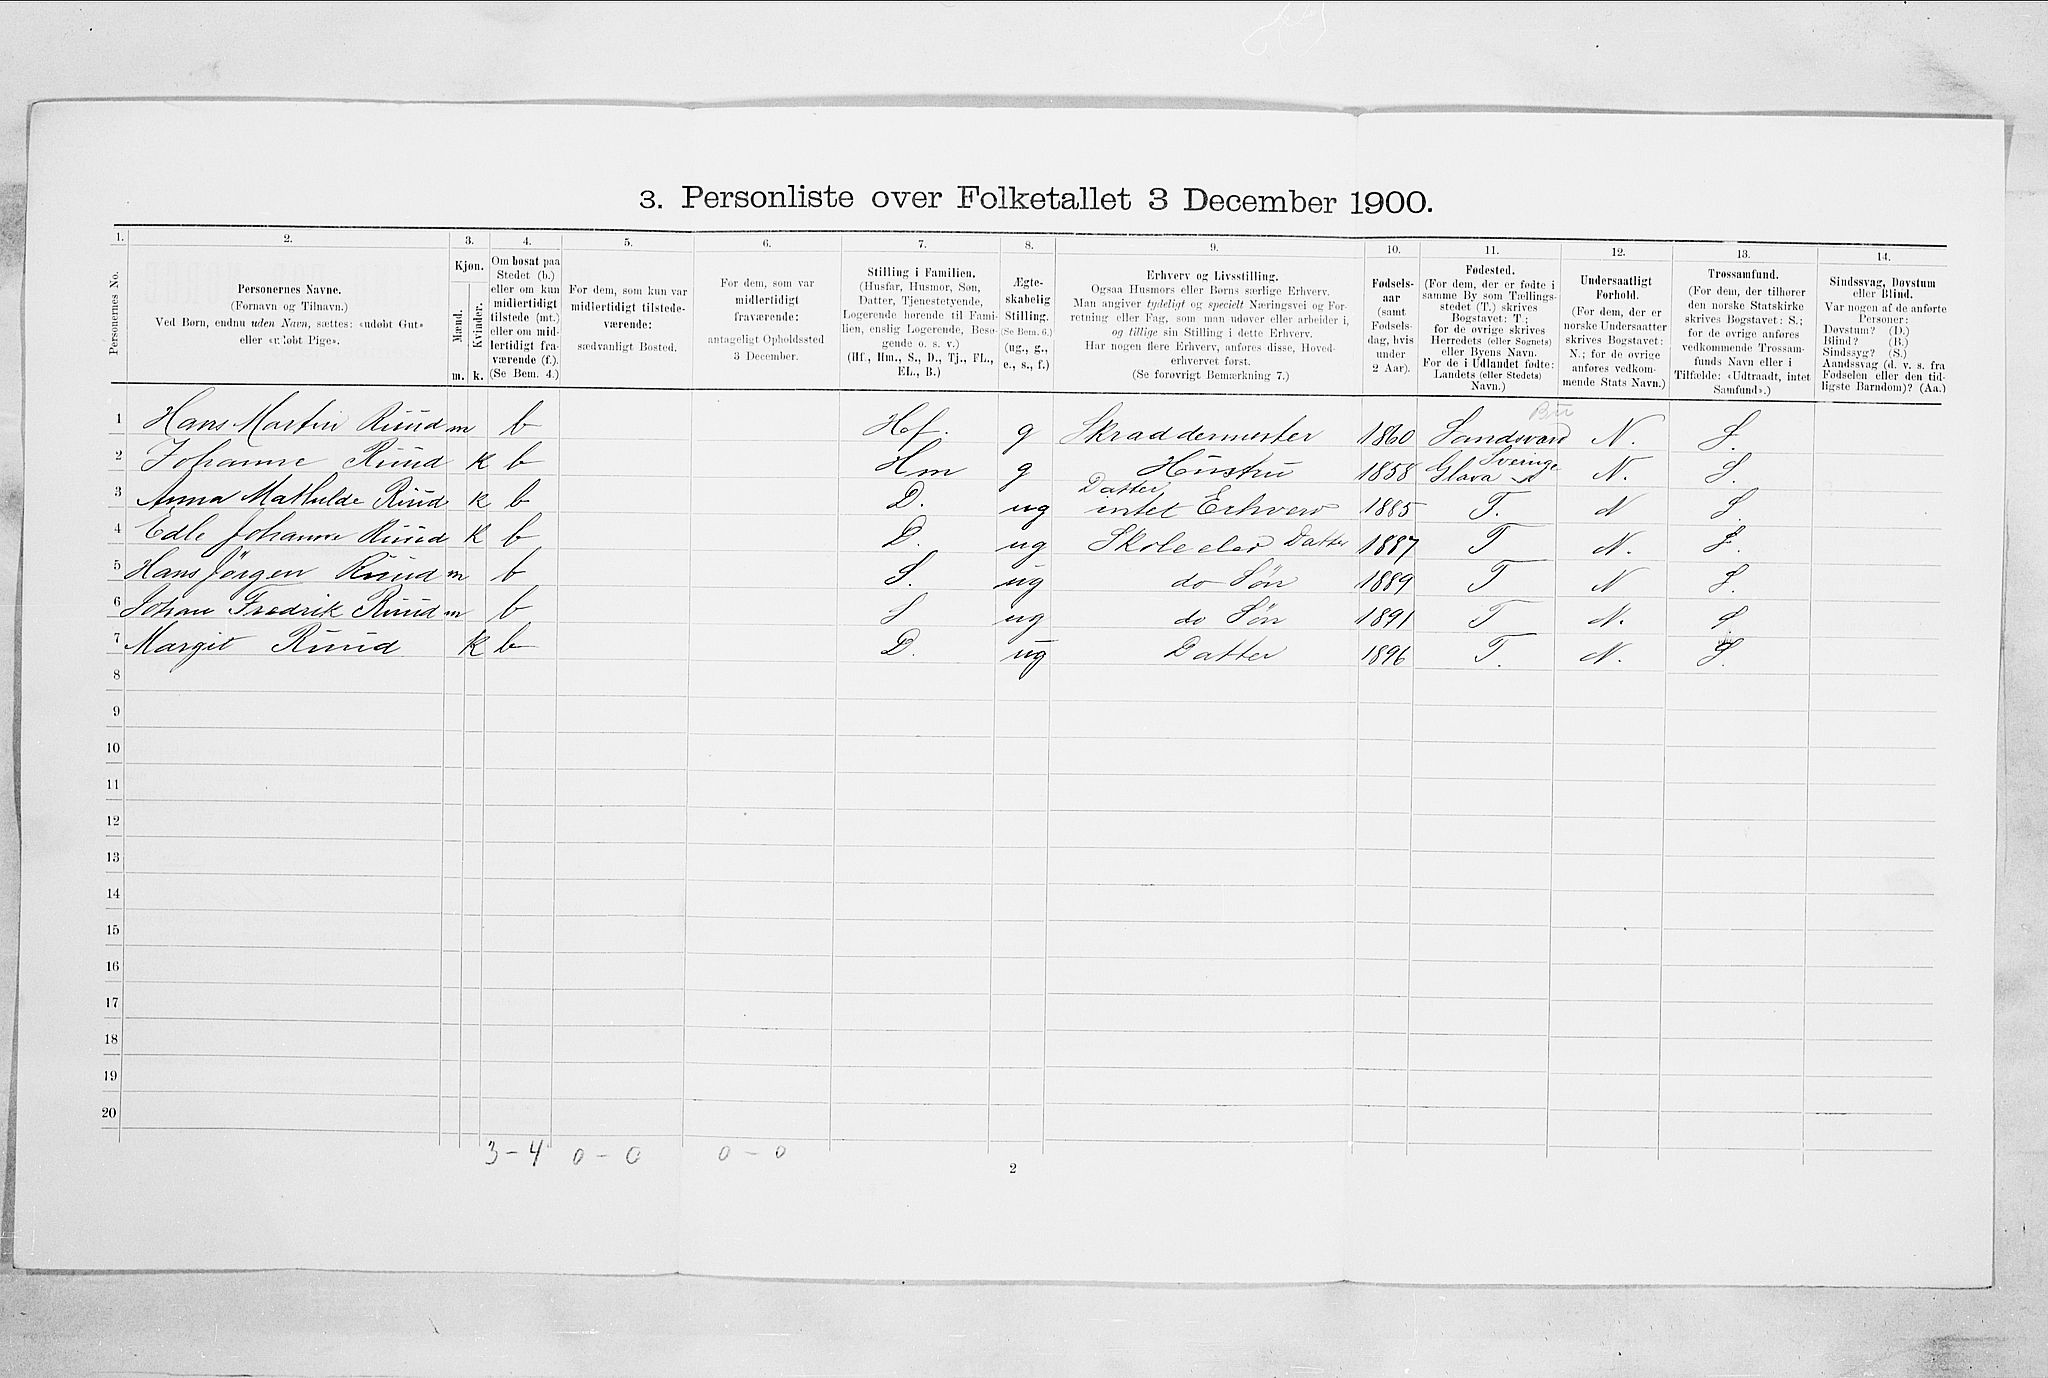 3. Personliste over Folketallet 3 December 1900.
1. 2. 3. 4. 5. 6. 7. 8. 9. 10. 11. 12. 13. 14.
Personernes No.
Personernes Navne.
(Fornavn og Tilnavn.)
Ved Børn, endnu uden Navn, sættes: «udøbt Gut»
eller «udøbt Pige».
Kjøn.
Mænd.
Kvinder.
m. k.
Om bosat paa
Stedet (b.)
eller om kun
midlertidigt
tilstede (mt.)
eller om mid-
lertidigt fra-
værende (f.).
(Se Bem. 4.)
For dem, som kun var
midlertidigt tilstede-
værende:
sædvanligt Bosted.
For dem, som var
midlertidigt
fraværende:
antageligt Opholdssted
3 December.
Stilling i Familien.
(Husfar, Husmor, Søn,
Datter, Tjenestetyende,
Logerende hørende til Fami-
lien, enslig Logerende, Besø-
gende o. s. v.)
(Hf., Hm., S., D., Tj., FL.,
EL., B.)
Ægte-
skabelig
Stilling.
(Se Bem. 6.)
(ug., g.,
e., s., f.)
Erhverv og Livsstilling.
Ogsaa Husmors eller Børns særlige Erhverv.
Man angiver tydeligt og specielt Næringsvei og For-
retning eller Fag, som man udøver eller arbeider i,
og tillige sin Stilling i dette Erhverv.
Har nogen flere Erhverv, anføres disse, Hoved-
erhvervet først.
(Se forøvrigt Bemærkning 7.)
Fødsels-
aar
(samt
Fødsels-
dag, hvis
under
2 Aar).
Fødested.
(For dem, der er fødte i
samme By som Tællings-
stedet (T.) skrives
Bogstavet: T;
for de øvrige skrives
Herredets (eller Sognets)
eller Byens Navn.
For de i Udlandet fødte:
Landets (eller Stedets)
Navn.)
Undersaatligt
Forhold.
(For dem, der er
norske Undersaatter
skrives Bogstavet:
N.; for de øvrige
anføres vedkom-
mende Stats Navn.)
Trossamfund.
(For dem, der tilhører
den norske Statskirke
skrives Bogstavet: S.;
for de øvrige anføres
vedkommende Trossam-
funds Navn eller i
Tilfælde: «Udtraadt, intet
Samfund».)
Sindssvag, Døvstum
eller Blind.
Var nogen af de anførte
Personer:
Døvstum? (D.)
Blind? (B.)
Sindssyg? (S.)
Aandssvag (d. v. s. fra
Fødselen eller den tid-
ligste Barndom)? (Aa.)
1 Hans Martin Ruud m b Hf. g Skraddermester 1860 Sandsværd N. S.
2 Johanne Ruud k b Hm g Hustru 1858 Glava Sverige N. S.
3 Anna Mathilde Ruud k b D. ug Datter intet Erhverv 1885 T. N S.
4 Edle Johanne Ruud k b D. ug Skoleelev Datter 1887 T N. S.
5 Hans Jörgen Ruud m b S. ug do Sön 1889 T N S.
6 Johan Fredrik Ruud m b S ug do Sön 1891 T N. S
7 Margit Ruud k b D. ug Datter 1896 T. N. S.
8
9
10
11
12
13
14
15
16
17
18
19
20
3-4 0-0 0-0
2